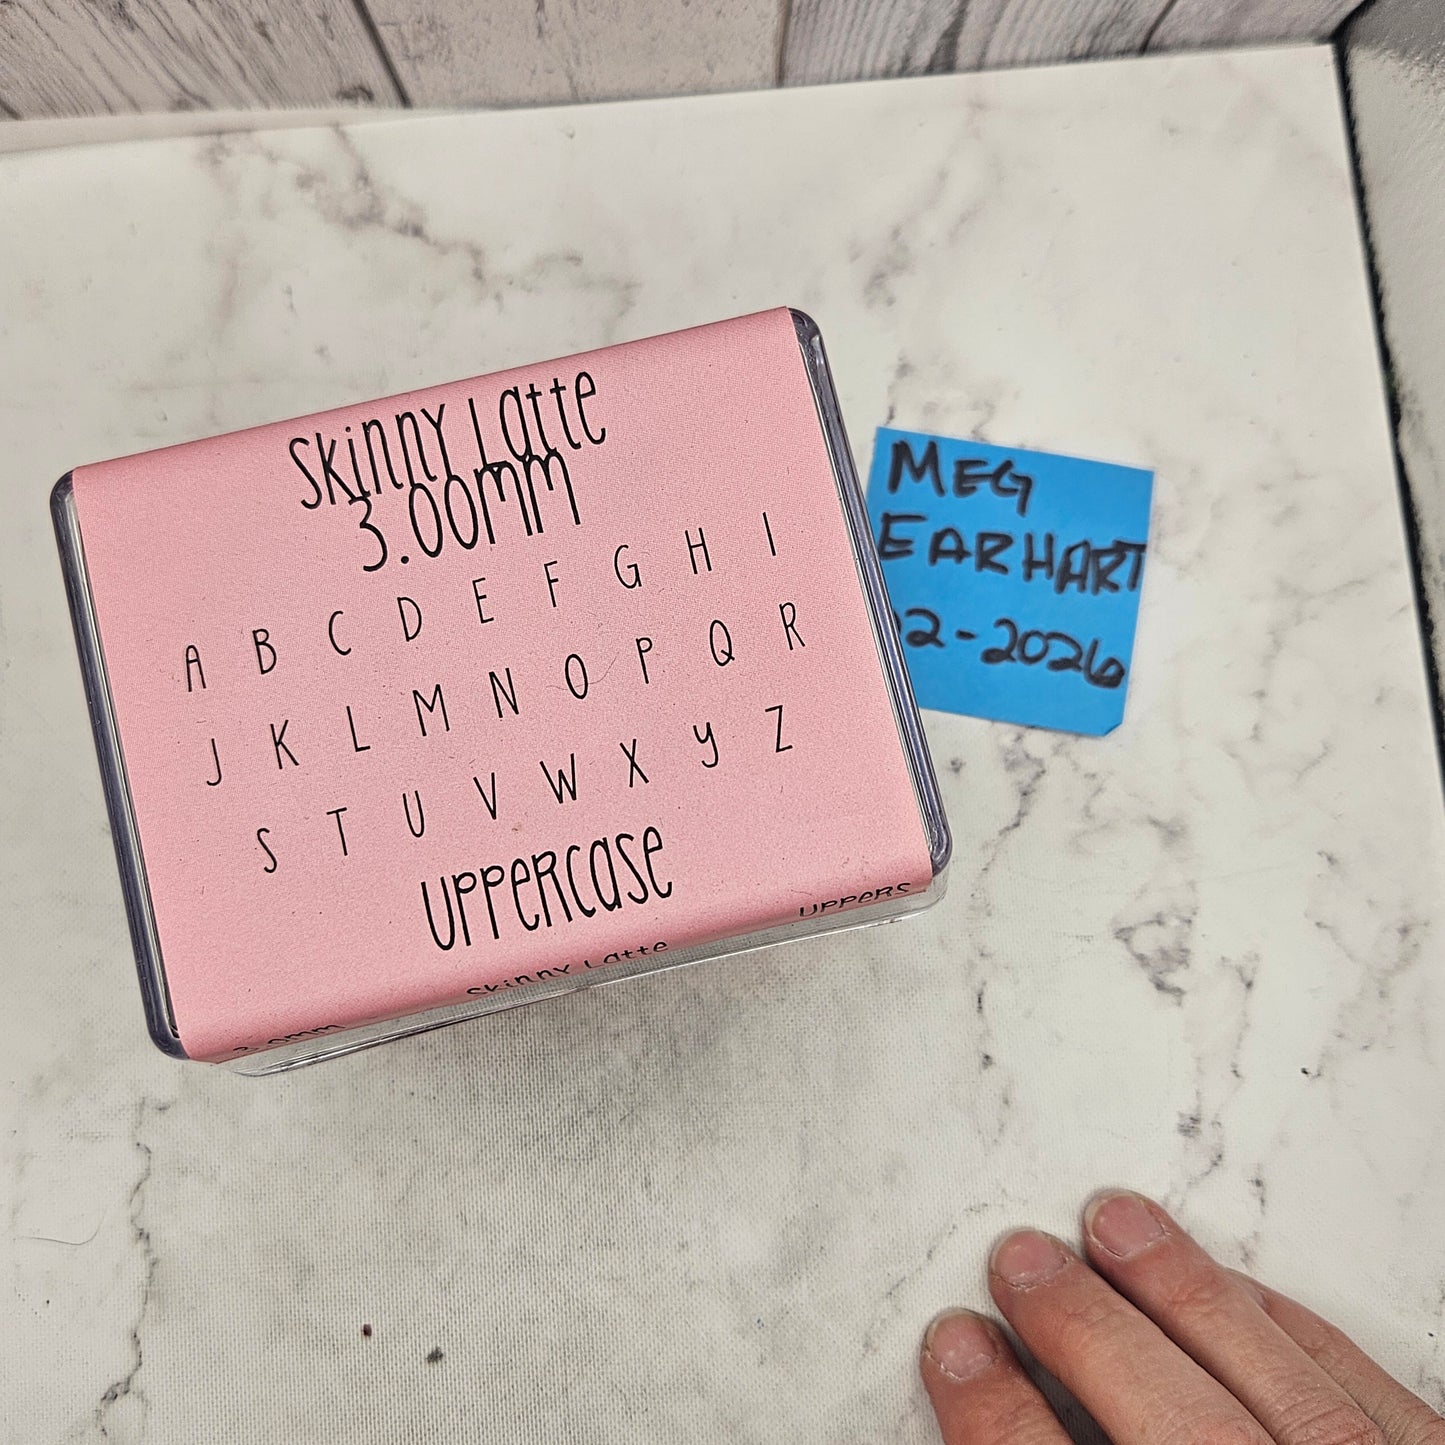 Skinny Latte
3.00mm
A B C D E F G H I
J K L M N O P Q R
S T U V W X y Z
UPPERCASE
3.0mm Skinny Latte UPPERS
MEG
EARHART
02-2026